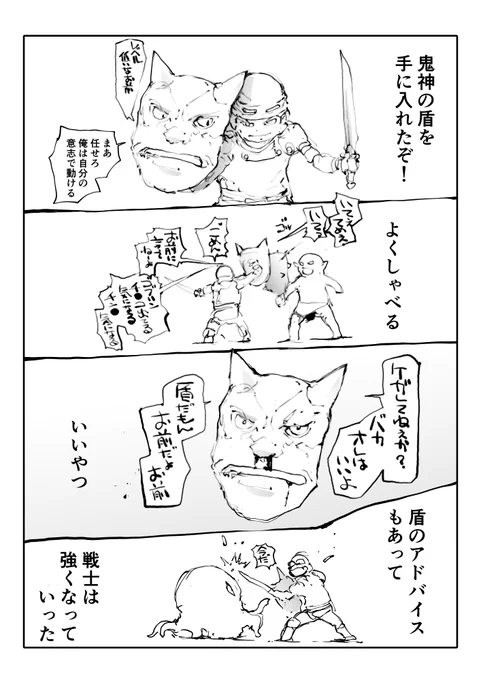 鬼神の盾を
手に入れたぞ！
レベル
低いなお前
まあ
任せろ
俺は自分の
意志で動ける
よくしゃべる
いてえ
てめえ
いてえ
ゴッ
ごめん
お前に
言って
ねーよ
ゴブリン
チン●出てる
気になる
チン●
気になる
ケガしてねえか？
バカ
オレは
いいよ
盾だもん
お前だよ
お前
いいやつ
盾のアドバイス
もあって
今だ
戦士は
強くなって
いった